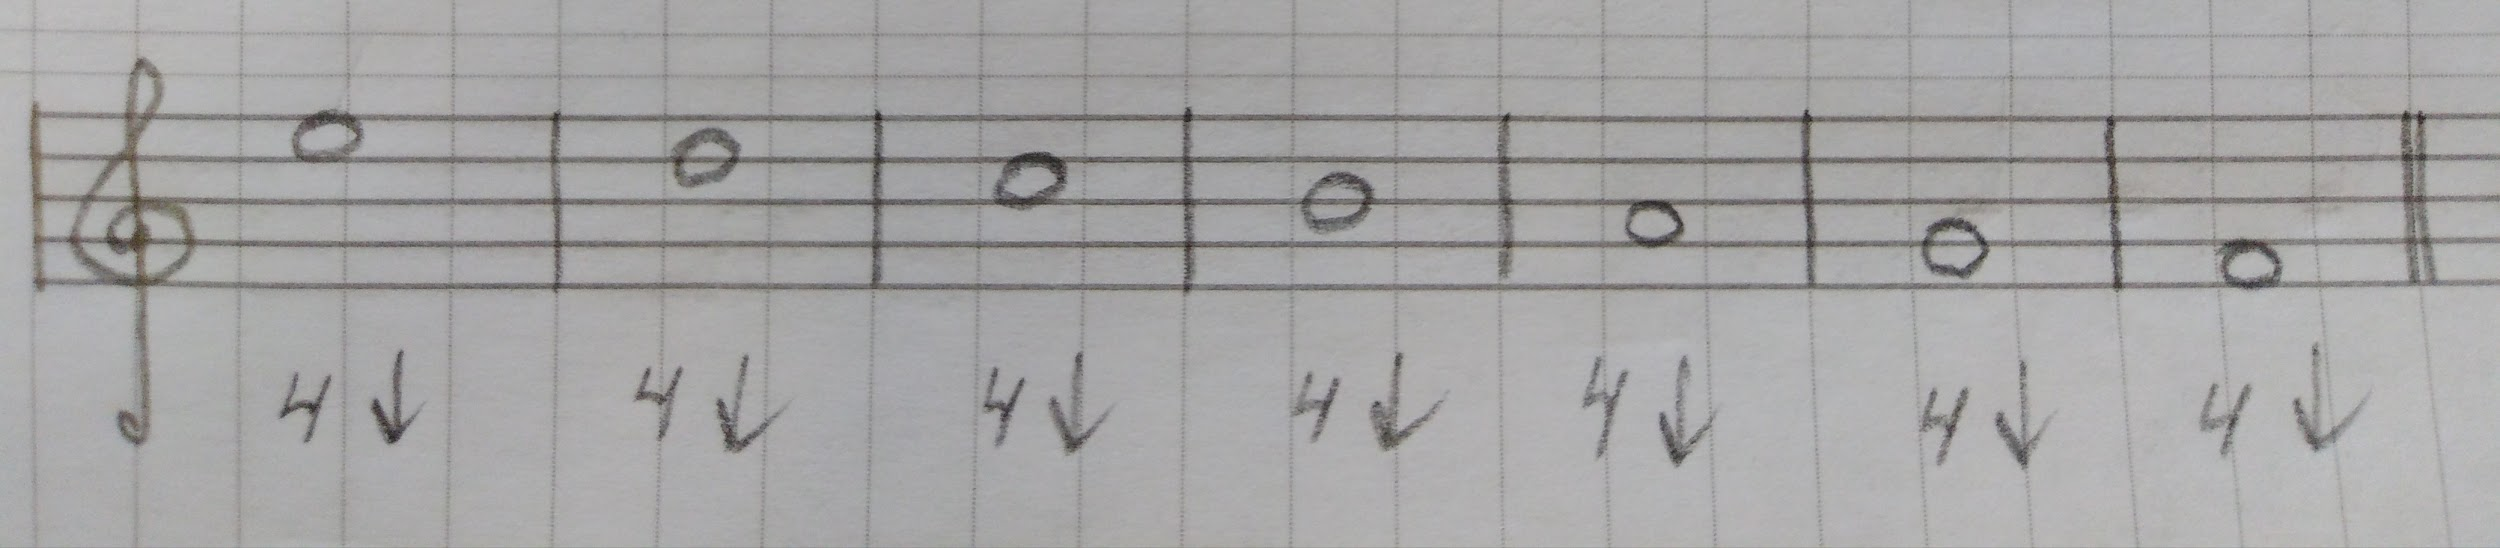 4 ↓ 4 ↓ 4 ↓ 4 ↓ 4 ↓ 4 ↓ 4 ↓